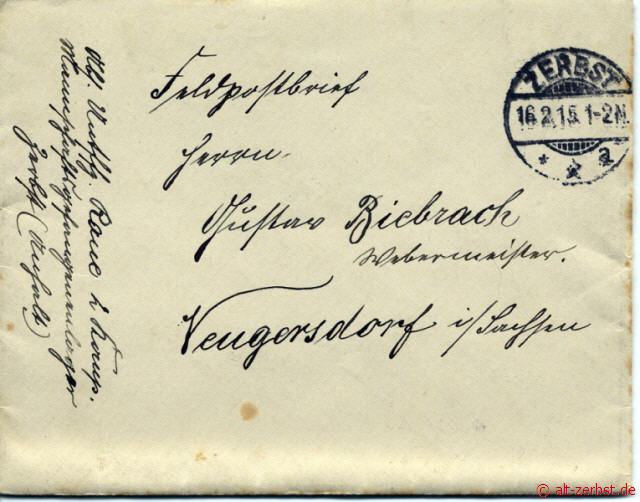 Feldpostbrief
Herrn
Gustav Biebrach
Webermeister.
Neugersdorf i/Sachsen
ZERBST
16.2.15. 1-2N.
* * a
Abs. Untffz. Rane 2. Komp.
Mannschaftsgefangenenlager
Zerbst (Anhalt)
© alt-zerbst.de